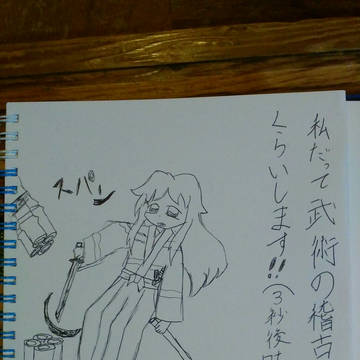 私だって武術の稽古
くらいします!!(3秒後
スパン